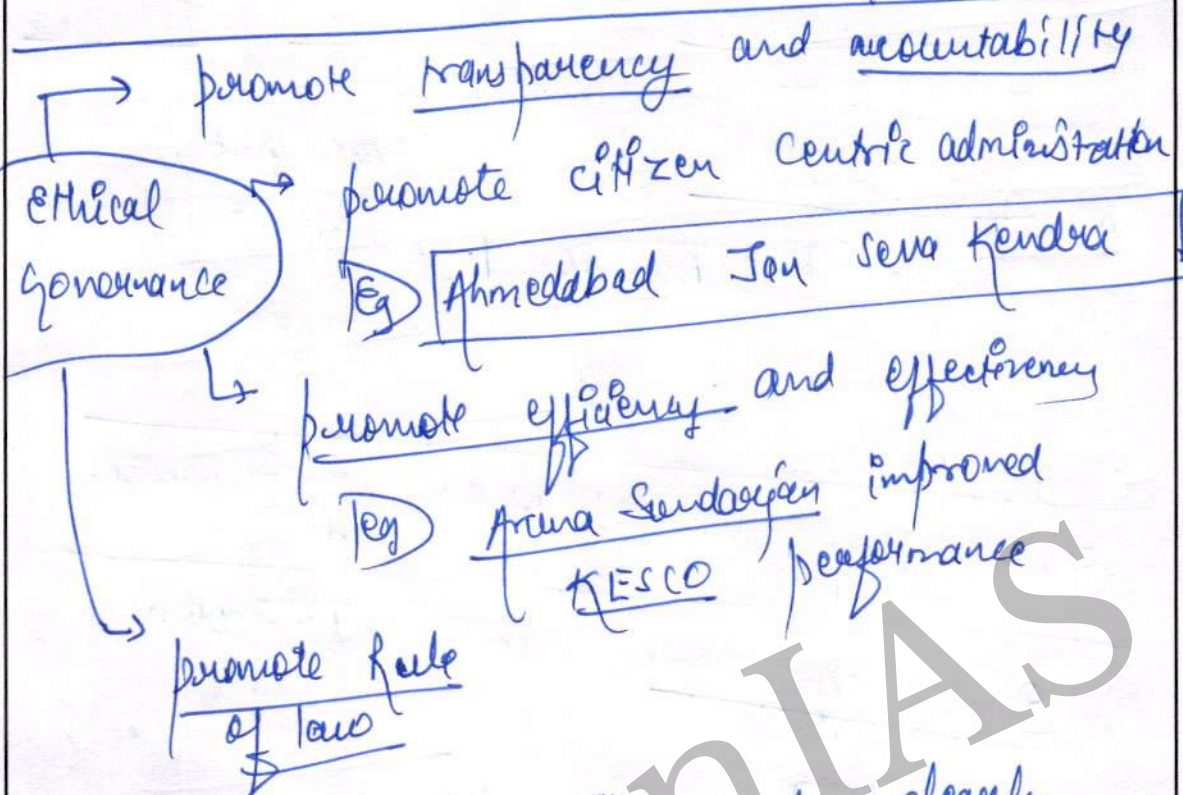 promote transparency and accountability
Ethical
Governance
promote citizen centric administration
Eg Ahmedabad Jan Seva Kendra
promote efficiency and effectiveness
eg Aruna Sundarajan improved
KESCO performance
promote Rule
of law
nIAS